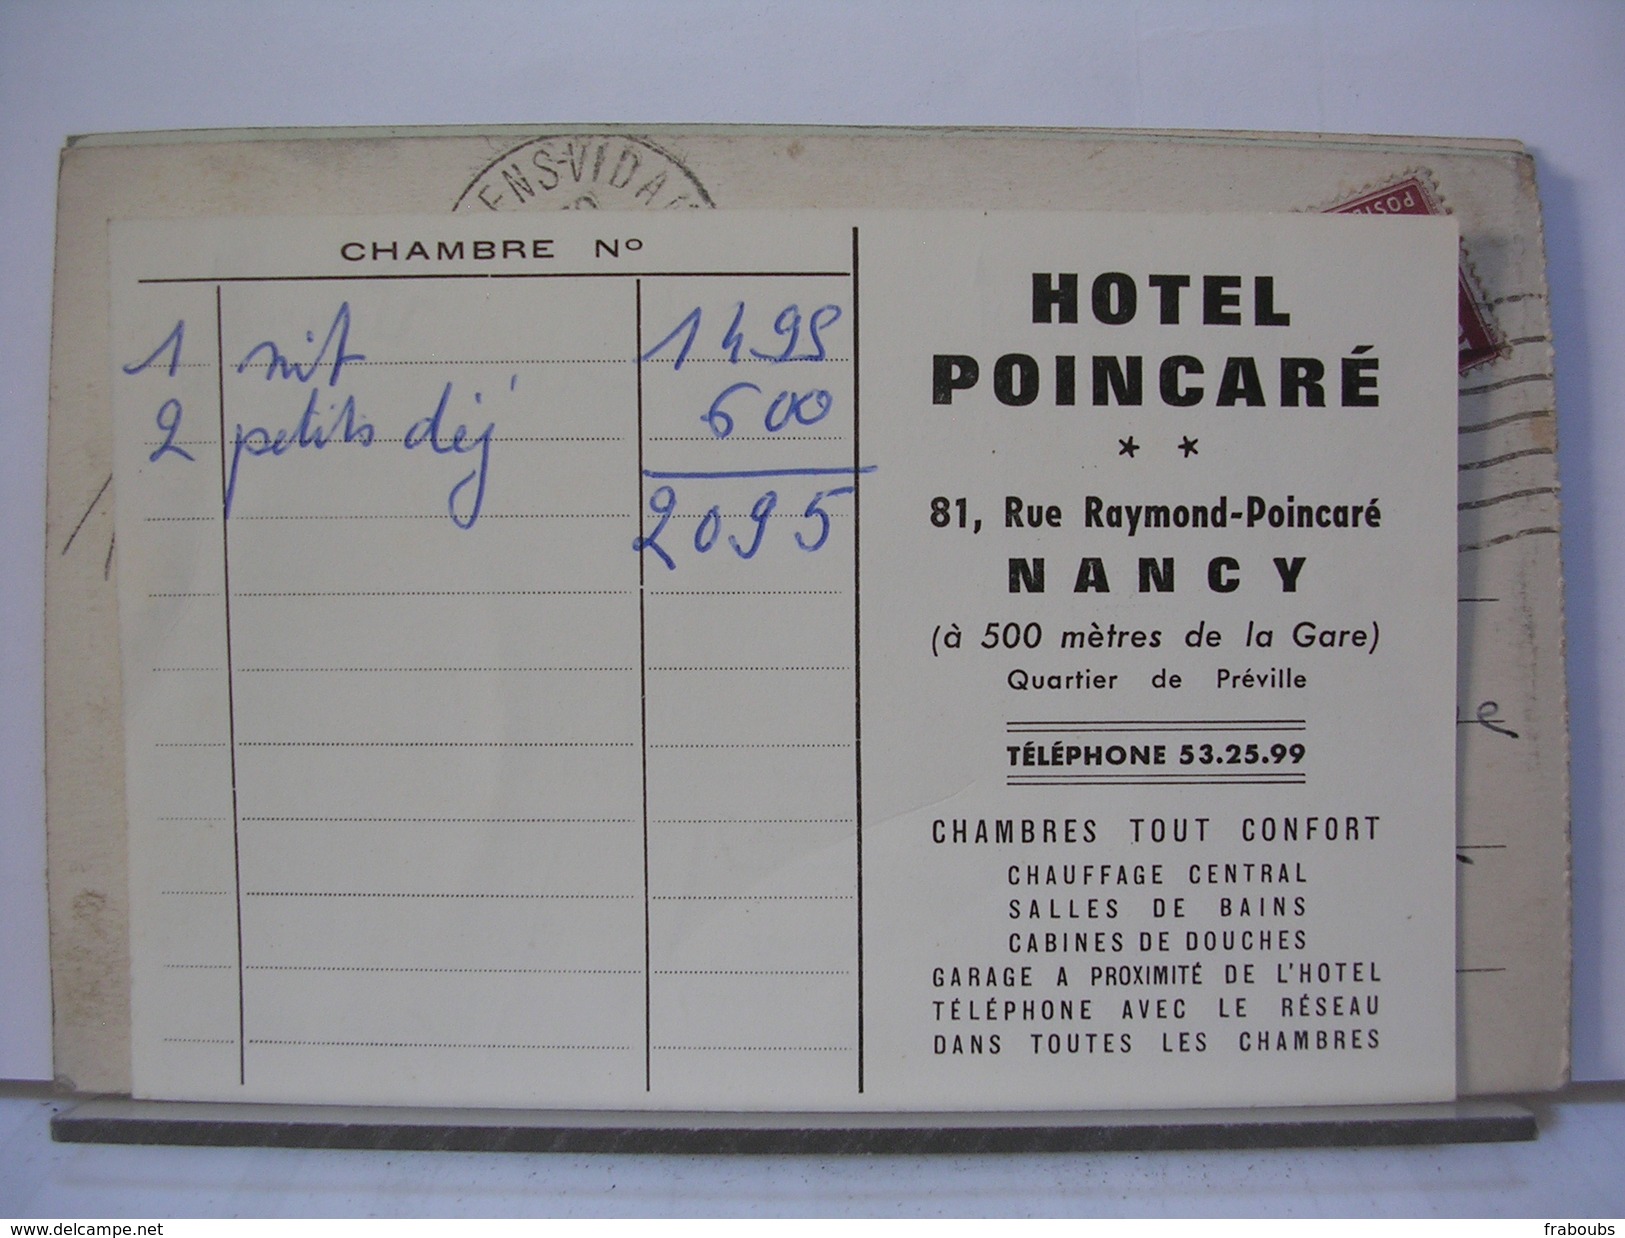 ENS-VIDA
POSTE
CHAMBRE Nº
1 nit 1495
2 petits déj' 600
2095
HOTEL
POINCARÉ
* *
81, Rue Raymond-Poincaré
NANCY
(à 500 mètres de la Gare)
Quartier de Préville
TÉLÉPHONE 53.25.99
CHAMBRES TOUT CONFORT
CHAUFFAGE CENTRAL
SALLES DE BAINS
CABINES DE DOUCHES
GARAGE A PROXIMITÉ DE L'HOTEL
TÉLÉPHONE AVEC LE RÉSEAU
DANS TOUTES LES CHAMBRES
www.delcampe.net
fraboubs